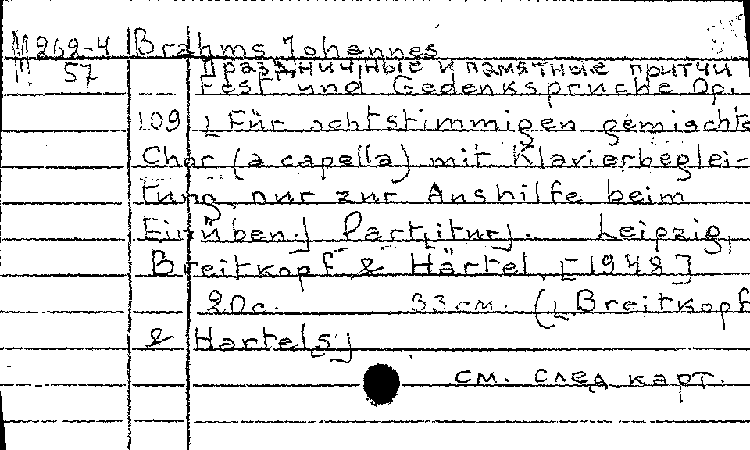 М262-4 Brahms Johannes
М 57 Праздничные и памятные притчи
Fest und Gedenksprüche Op.
109 [Für achtstimmigen gemischte
Chor (a capella) mit Klavierbeglei-
tung nur zur Aushilfe beim
Einüben.] Part[itur]. Leipzig,
Breitkopf & Härtel, [1948]
20с. 33см. ([Breitkopf
& Hartels]
см. след карт.